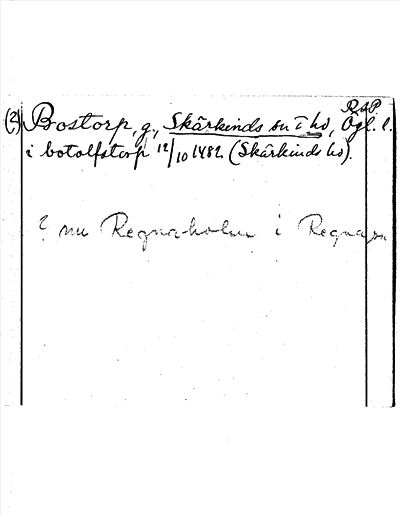 RAP
(2) Bostorp, g., Skärkinds sn i ho, Ögl. l.
i botolfstorp 12/10 1482 (Skärkinds ho).
? nu Regnaholm i Regna sn